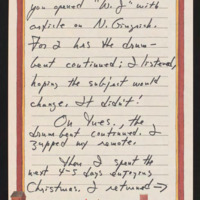 you opened "W. J" with
article on N. Gingrich.
For 2 hrs the drum-
beat continued; I listened,
hoping the subject would
change. It didn't!
On Tues., the
drum-beat continued. I
zapped my remote.
When I spent the
next 4-5 days enjoying
Christmas. I returned →